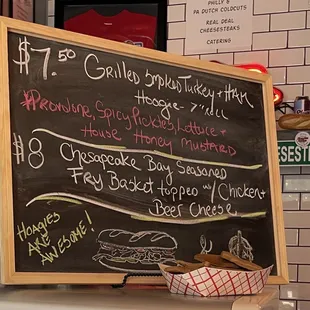 PHILLY &
PA DUTCH COLDCUTS
REAL DEAL
CHEESESTEAKS
CATERING
$7.50 Grilled Smoked Turkey + HAM
Hoagie - 7" Roll
*Provlone, Spicy Pickles, Lettuce +
House Honey Mustard
$8 Chesapeake Bay Seasoned
Fry Basket topped w/ Chicken +
Beer Cheese
HOAGIES
ARE
AWESOME!